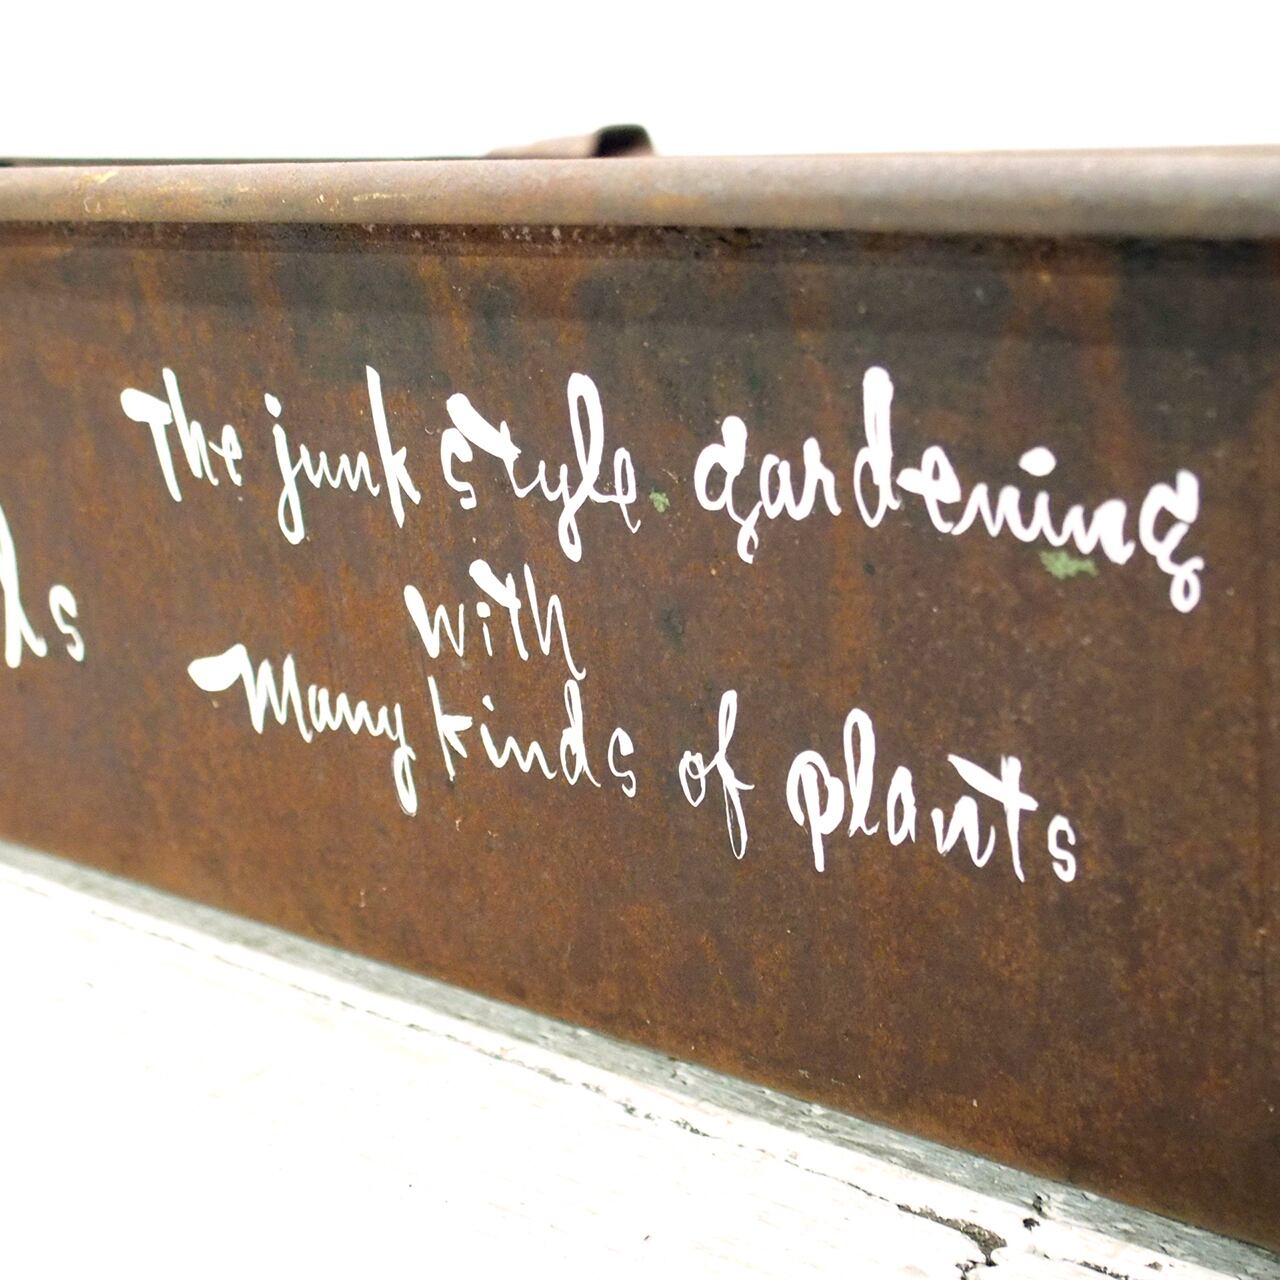 The junk style gardening
with
Many kinds of plants